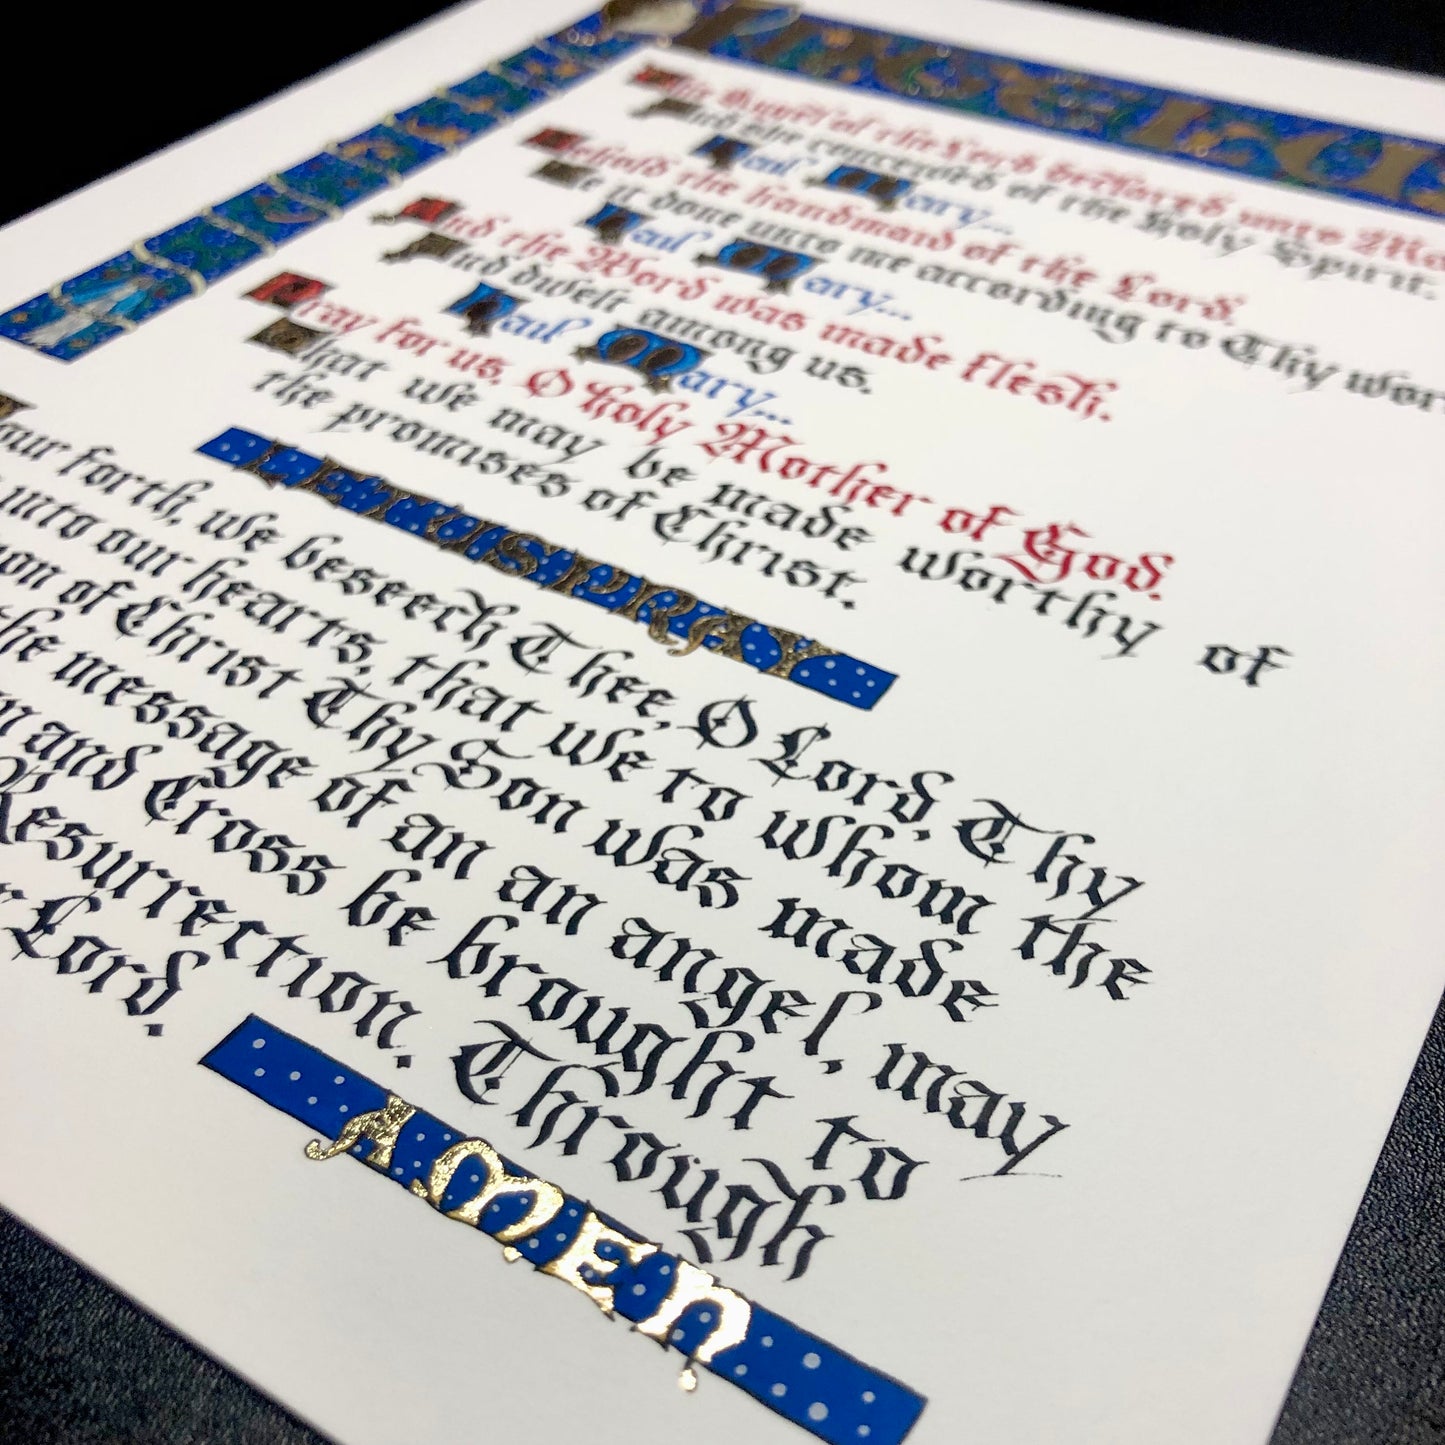 The Angelus
The Angel of the Lord declared unto Ma
And she conceived of the Holy Spirit.
Hail Mary...
Behold the handmaid of the Lord.
Be it done unto me according to Thy wor
Hail Mary...
And the Word was made Flesh.
And dwelt among us.
Hail Mary...
Pray for us, O holy Mother of God.
that we may be made worthy of
the promises of Christ.
LET US PRAY
our forth, we beseech Thee, O Lord, Thy
into our hearts, that we to whom the
ion of Christ Thy Son was made
the message of an angel, may
n and Cross be brought to
Resurrection. Through
r Lord.
AMEN